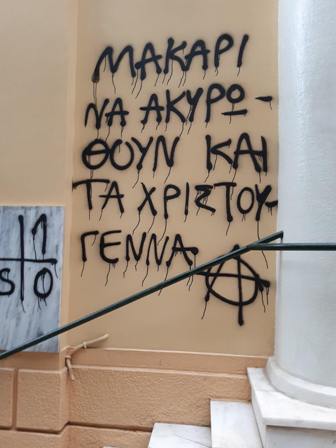 ΜΑΚΑΡΙ
ΝΑ ΑΚΥΡΩ-
ΘΟΥΝ ΚΑΙ
ΤΑ ΧΡΙΣΤΟΥ-
ΓΕΝΝΑ